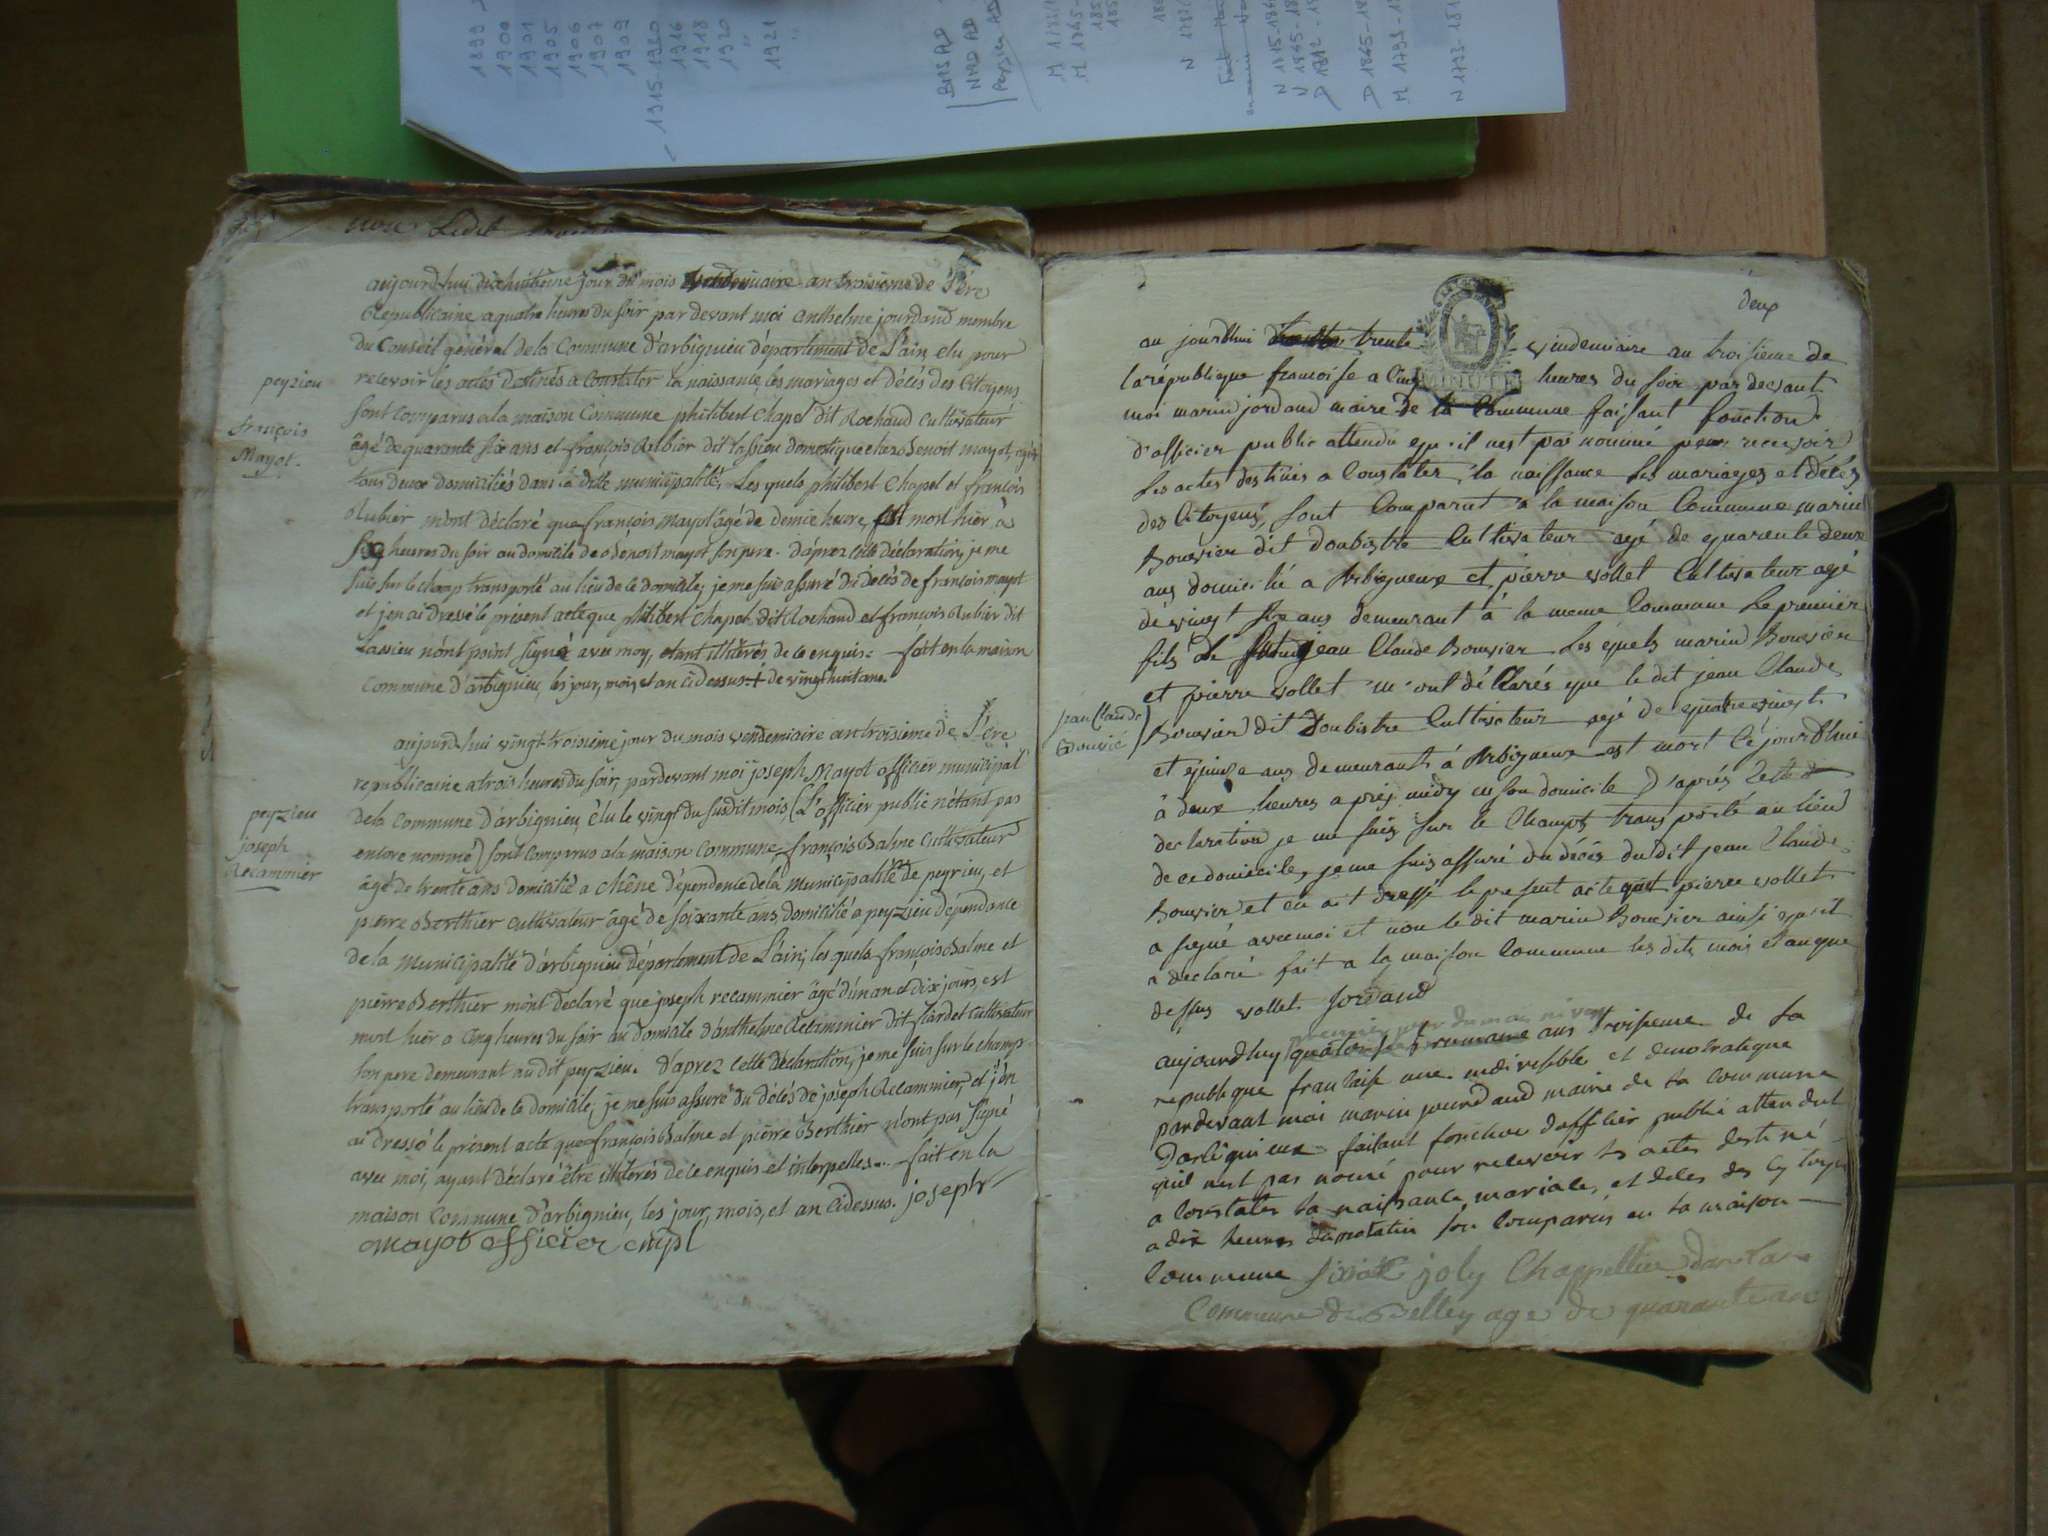 1899
1900
1901
1905
1906
1907
1909
1915-1920
1916
1918
1920
1921
BMS AD
NMD AD
Peyzieu AD
non Ledit
aujourd'hui dixhuitieme jour du mois vendemiaire an troisieme de L'ére
Republicaine a quatre heures du soir par devant moi anthelme jourdand membre
du Conseil général de la Commune d'arbignieu département de L'ain elu pour
recevoir les actes destinés a Constater la naissance, les mariages et décés des Citoyens
sont comparus a la maison Commune philibert Chapel dit Rochaud Cultivateur
âgé de quarante six ans et françois Rubier dit Lassieu domestique chez benoit mayot,
tous deux domiciliés dans la dite municipalité. Les quels philibert Chapel et françois
Rubier m'ont déclaré que françois mayot âgé de demie heure, est mort hier à
heures du soir au domicile de bénoit mayot son pere. D'áprez cette déclaration, je me
suis sur le champ transporté au lieu de ce domicile, je me suis assuré du decés de françois mayot
et j'en ai dressé le présent acte que philibert Chapel dit Rochaud et françois Rubier dit
Lassieu n'ont point signé avec moy, etant illitérés de ce enquis. fait en la maison
Commune d'arbignieu, les jour, mois, et an cidessus + de vingt huit ans.
peyzieu
françois
Mayot.
aujourd'hui vingt-troisième jour du mois vendemiaire an troisième de L'ere
republicaine a trois heures du soir, pardevant moi joseph Mayot officier municipal
de la commune d'arbignieu, élu le vingt du susdit mois (L'officier public n'étant pas
encore nommé) sont comparus a la maison commune françois Balme Cultivateur
âgé de trente ans domicilié a chêne dépendence de la municipalité de peyrieu, et
pierre Berthier cultivateur âgé de soixante ans, domicilié a peyzieu dépendance
de la municipalité d'arbignieu département de L'ain; les quels françois Balme et
pierre Berthier m'ont declaré que joseph recammier âgé d'un an et dix jours, est
mort hier a Cinq heures du soir au domicile d'anthelme Récammier dit flardet cultivateur
son pere demeurant au dit peyzieu. D'aprez cette déclaration, je me suis sur le champ
transporté au lieu de ce domicile, je me suis assuré du décés de joseph Récammier, et j'en
ai dressé le présent acte que françois Balme et pierre Berthier n'ont pas signé
avec moi, ayant déclaré être illiterés de ce enquis et interpellés. fait en la
maison Commune d'arbignieu, les jour, mois, et an cidessus. joseph
mayot officier
peyzieu
joseph
Récammier
deux
MINUTE
au jourdhui trente vendemiaire an troisieme de
la république francoise a Cinq heures du soir par devant
moi marin jordand maire de la Commune faisant fonction
d'officier public attendu qu'il nest pas nommé pour recevoir
les actes destinés a Constater la naissance les mariages et décés
des Citoyens, sont Comparut a la maison Commune marin
Bouvier dit Doubistre Cultivateur agé de quarente deux
ans domicilié a Arbigneux et pierre vollet Cultivateur agé
de vingt six ans demeurant à la meme Commune Le premier
fils de jean Claude Bouvier Les quels marin Bouvier
et pierre vollet m'ont déClarés que le dit jean Claude
Bouvier dit Doubistre Cultivateur agé de quatre vingt
et quinze ans demeurant à Arbigneux est mort Céjourdhui
à deux heures apréz midy en son domicile D'aprés Cette
declaration je me suis sur le Champ transporté au lieu
de ce domicile, je me suis assuré du décés du dit jean Claude
Bouvier et en ait dressé le present acte que pierre vollet
a signé avec moi et non le dit marin Bouvier ainsi quil
a déclaré fait a la maison Commune les dits mois et an que
dessus vollet Jordand
jean Claude
Bouvié
aujourdhuy quatorse frumaire ans troisieme de la
republique francaise une indivisible et democratique
pardevant moi marin jourdand maire de la commune
Darbignieux faisant fonction dofficier public attendut
quil nest pas nomé pour recevoir les actes destiné
a Constater la naissance, mariage, et deces des Cytoyen
a dix heures du matin son Comparus en la maison
Commune joly Chappellier dans la
Commune de Belley age de quarante ans